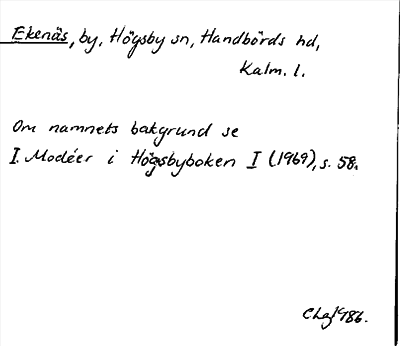 Ekenäs, by, Högsby sn, Handbörds hd,
Kalm. l.
Om namnets bakgrund se
I. Modéer i Högsbyboken I (1969), s. 58.
1986.